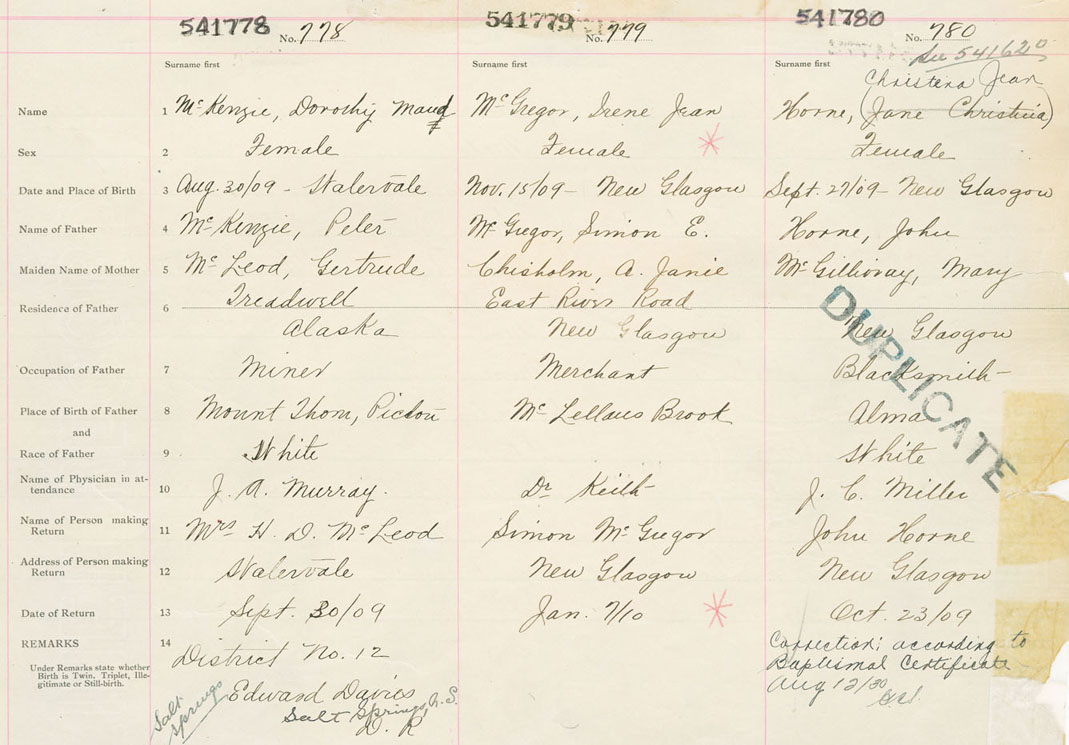 541778 No. 778
541779 No. 779
541780 No. 780
See 541620
Surname first
Surname first
Surname first
Christena Jean
Name 1 McKenzie, Dorothy Maud McGregor, Irene Jean Horne, (Jane Christina)
Sex 2 Female Female Female
Date and Place of Birth 3 Aug. 30/09 - Watervale Nov. 15/09 - New Glasgow Sept. 27/09 - New Glasgow
Name of Father 4 McKenzie, Peter McGregor, Simon E. Horne, John
Maiden Name of Mother 5 McLeod, Gertrude Chisholm, A. Janie McGillivray, Mary
Residence of Father 6 Treadwell East River Road
Alaska New Glasgow New Glasgow
DUPLICATE
Occupation of Father 7 Miner Merchant Blacksmith
Place of Birth of Father 8 Mount Thom, Pictou McLellans Brook Alma
and
Race of Father 9 White White
Name of Physician in at-
tendance 10 J. A. Murray. Dr Keith J. C. Miller
Name of Person making
Return 11 Mrs H. D. McLeod Simon McGregor John Horne
Address of Person making
Return 12 Watervale New Glasgow New Glasgow
Date of Return 13 Sept. 30/09 Jan. 7/10 Oct. 23/09
REMARKS 14
Under Remarks state whether
Birth is Twin, Triplet, Ille-
gitimate or Still-birth.
District No. 12
Edward Davies
Salt Springs, N.S.
D. R
Salt
Springs
Correction; according to
Baptismal Certificate
Aug 12/30